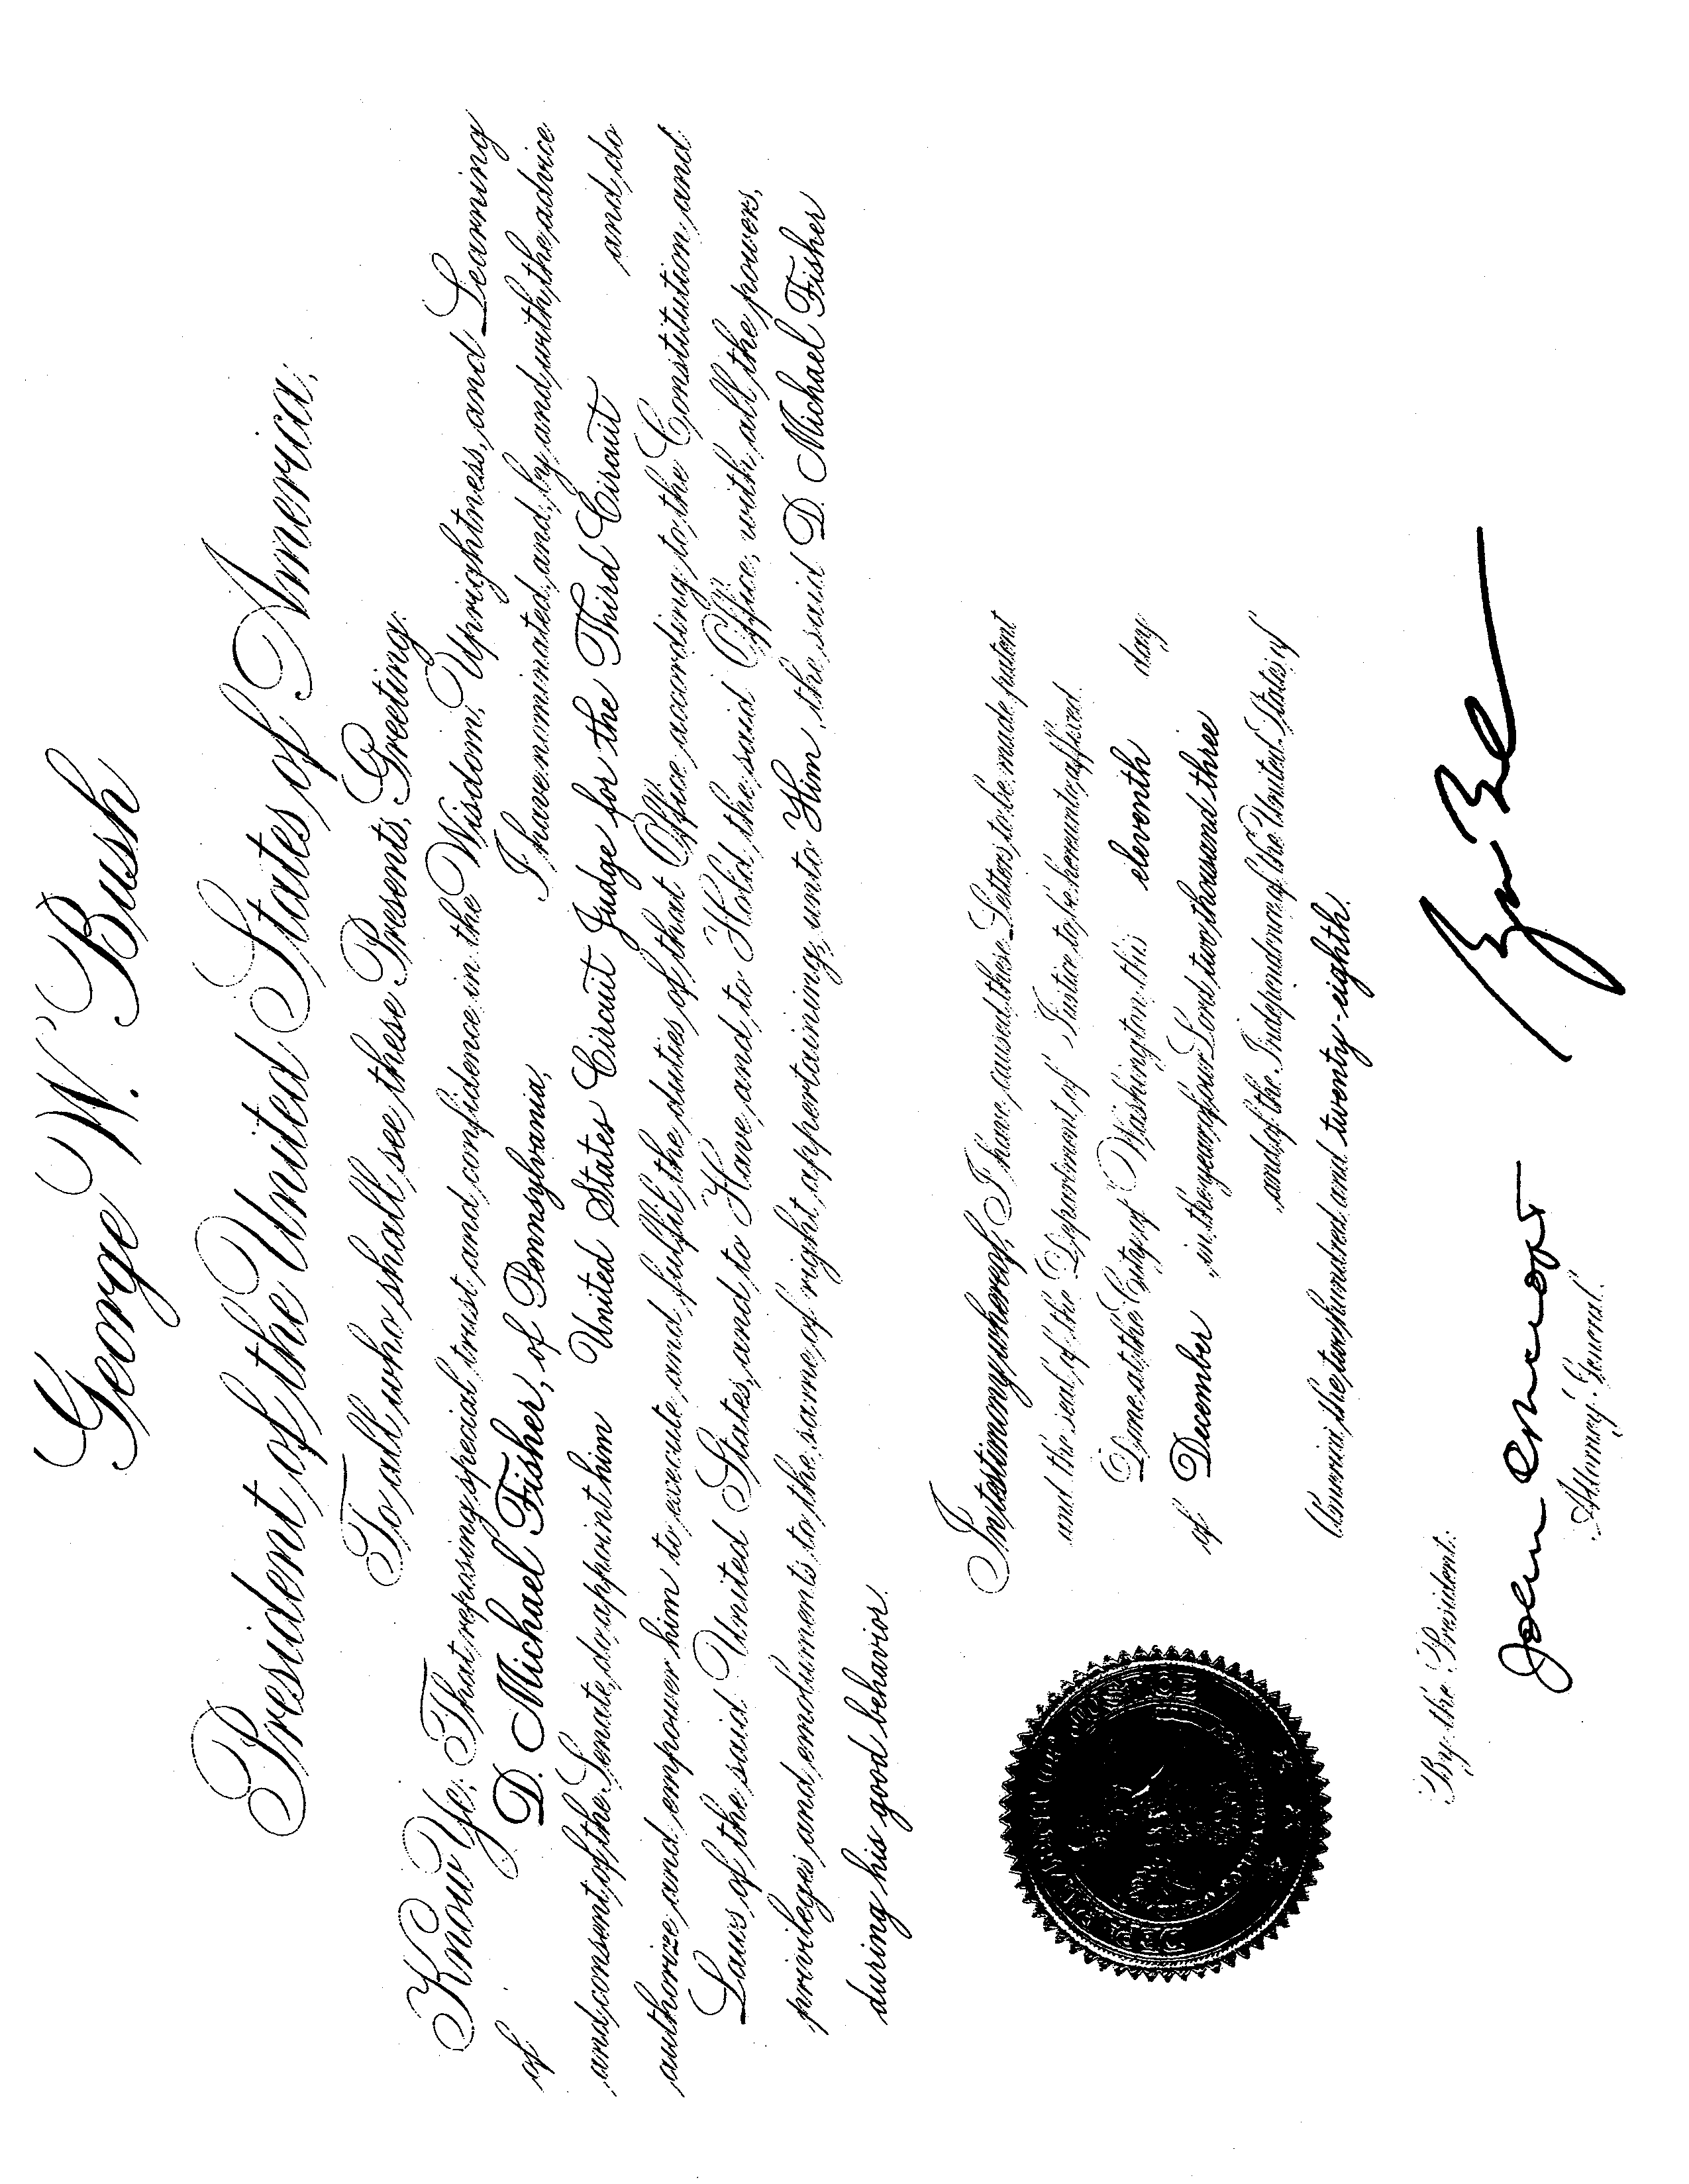 George W. Bush
President of the United States of America,
To all who shall see these Presents, Greeting:
Know Ye, That reposing special trust and confidence in the Wisdom, Uprightness, and Learning
of D. Michael Fisher, of Pennsylvania, I have nominated, and, by and with, the advice
and consent of the Senate, do appoint him United States Circuit Judge for the Third Circuit and do
authorize and empower him to execute and fulfil the duties of that Office according to the Constitution and
Laws of the said United States, and to Have and to Hold the said Office, with all the powers,
privileges and emoluments to the same of right appertaining, unto Him, the said D. Michael Fisher
during his good behavior.
In testimony whereof, I have caused these Letters to be made patent
and the seal of the Department of Justice to be hereunto affixed.
Done at the City of Washington this eleventh day
of December in the year of our Lord two thousand three
and of the Independence of the United States of
America the two hundred and twenty-eighth.
By the President:
John Ashcroft
Attorney General.